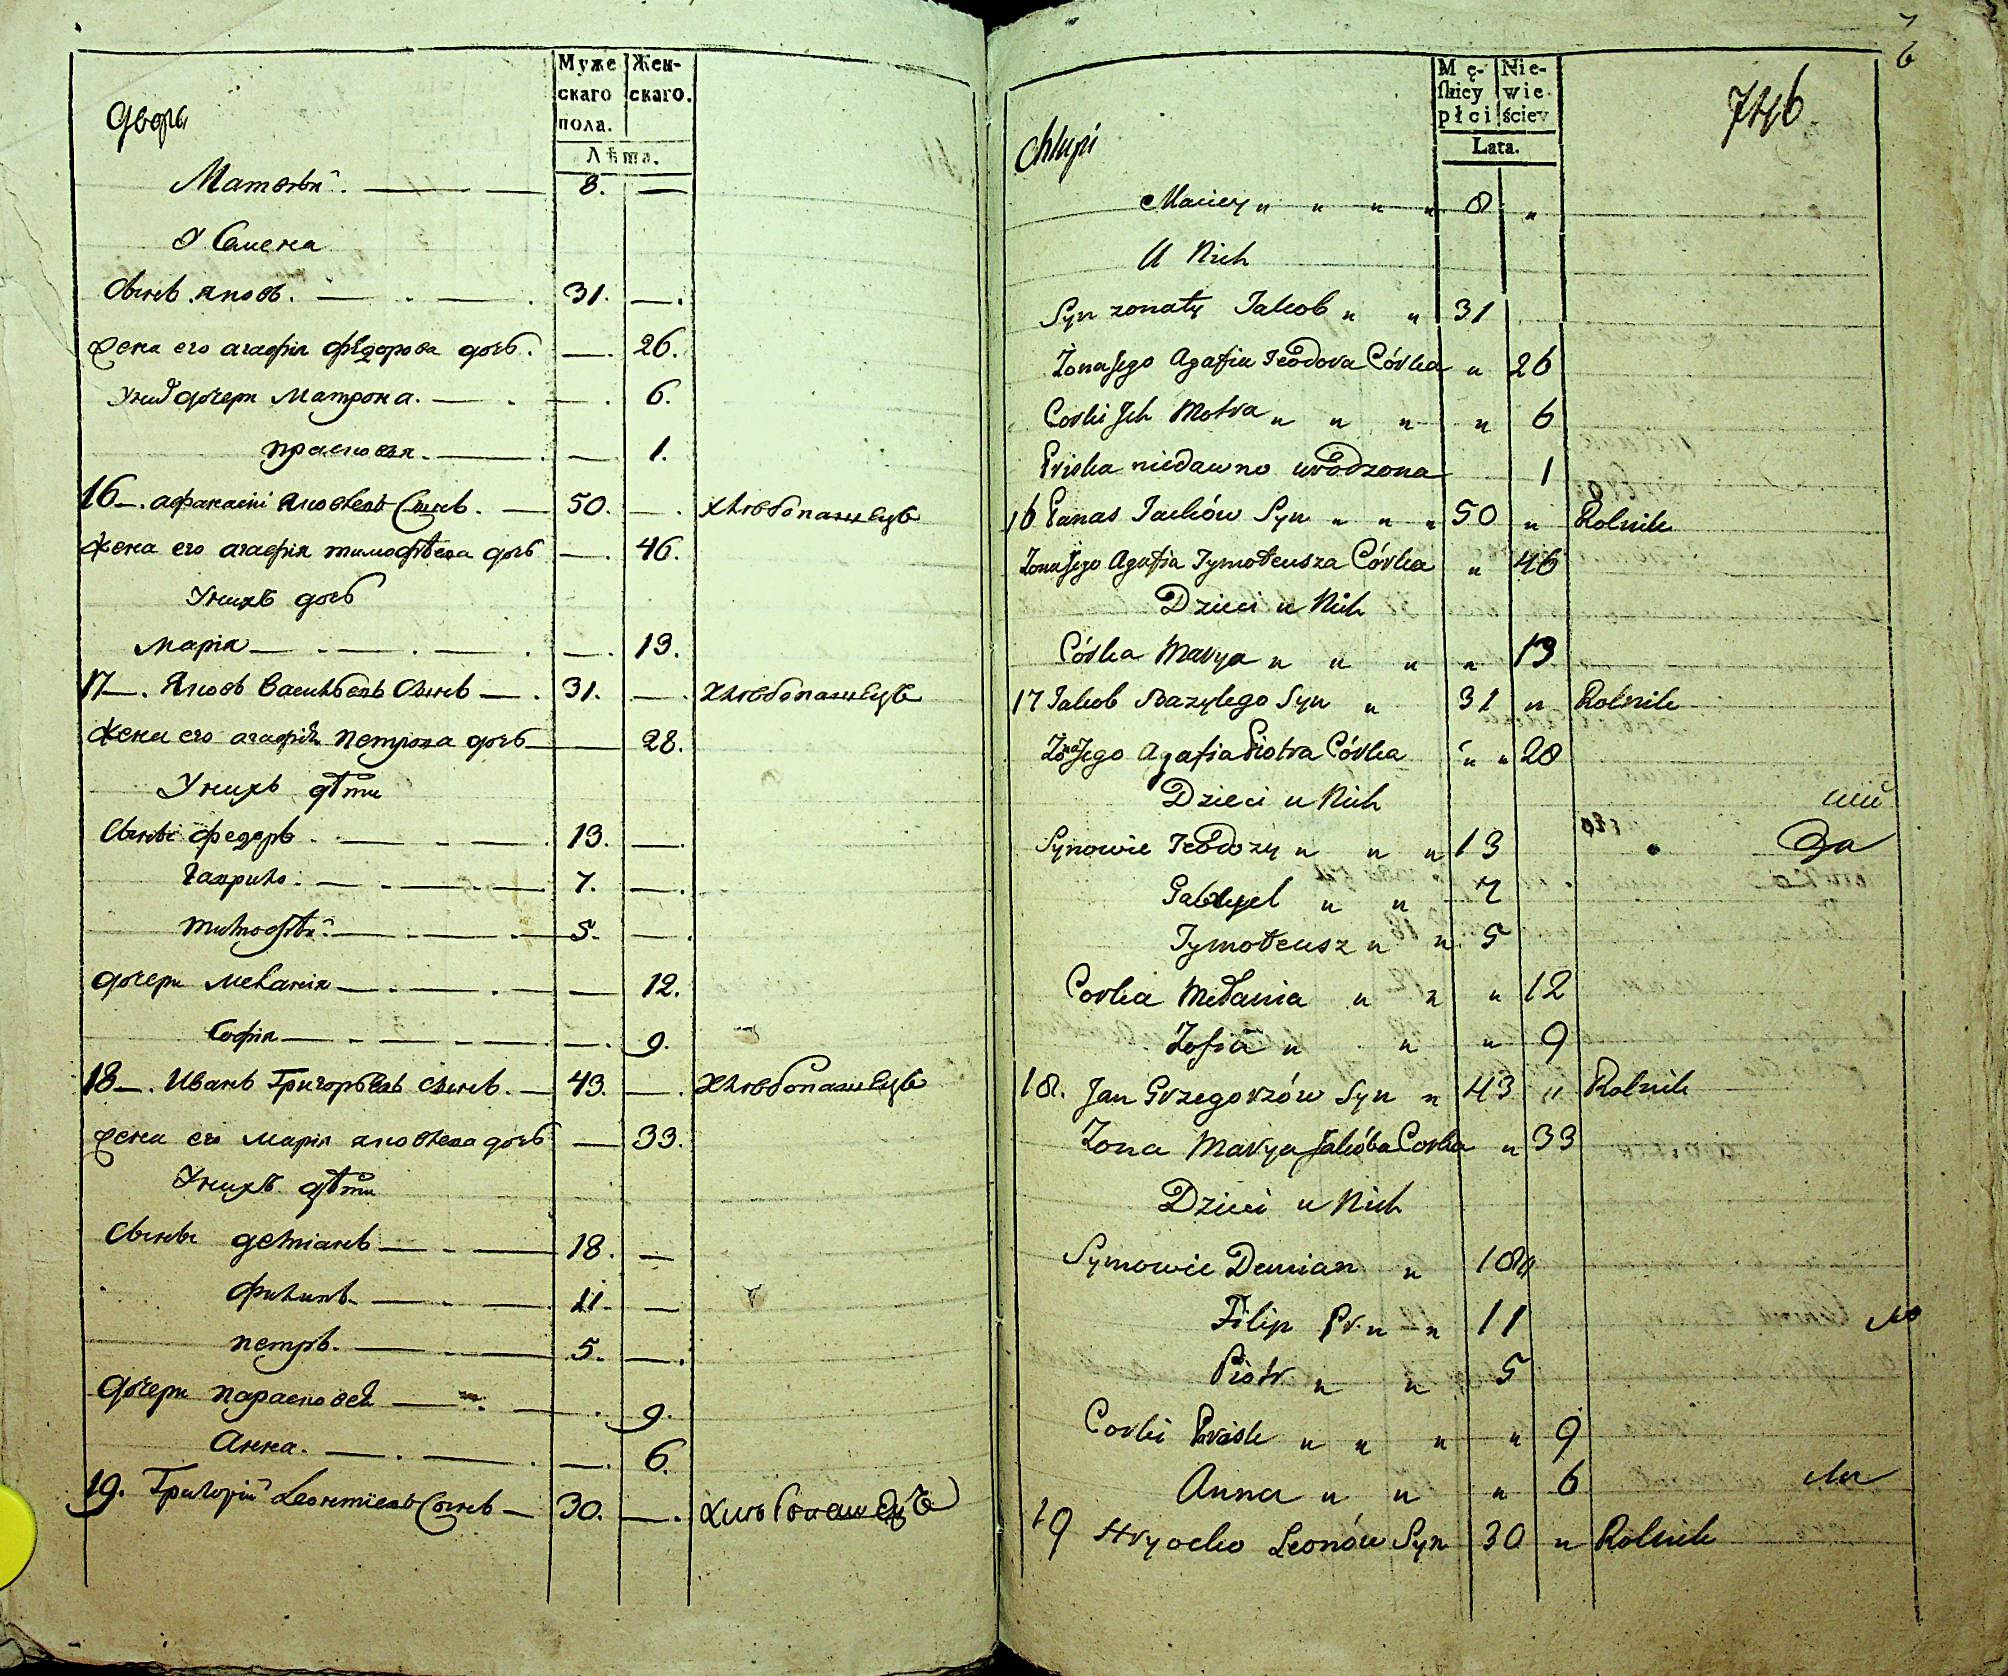 Муже
скаго
пола.
Жен-
скаго.
Лѣта.
дворъ
Матвѣй. 8. —
У Семена
Сынъ Яковъ. 31. —
жена его агафия фѣдорова дочь. — 26.
У них дочери Матрона. — 6.
прасковея. — 1.
16 афанасий Яковлевъ Сынъ. 50. — хлѣбопашецъ
жена его агафия тимофѣева дочь — 46.
У нихъ дочь
Мария — 13.
17 Яковъ Васильевъ Сынъ 31. — хлѣбопашецъ
жена его агафия петрова дочь — 28.
У нихъ дѣти
Сыны федоръ 13. —
Гаврило. 7. —
тимофѣй. 5. —
дочери Мелания — 12.
София — 9.
18 Иванъ Григорьевъ сынъ. 43. — хлѣбопашецъ
жена его Мария яковлева дочь — 33.
У нихъ дѣти
Сыны демианъ 18. —
филипъ 11. —
петръ. 5. —
дочери парасковея 9.
Анна. — 6.
19. Григорий Леонтиевъ Сынъ 30. — хлѣбопашецъ
7
6
Mę-
skiey
płci
Nie-
wie-
ściey
Lata.
746
Chłupi
Maciey " " " " 8 "
U Nich
Syn zonaty Jakob " " 31
Żona Jego Agafia Teodora Córka " 26
Corki Jch Motra " " " " 6
Priska niedawno urodzona 1
16 Panas Jacków Syn " " " 50 " Rolnik
Zona Jego Agafia Tymoteusza Córka " 46
Dzieci u Nich
Córka Marya " " " " 13
17 Jakob Bazylego Syn " 31 " Rolnik
Żona Jego Agafia Piotra Córka " " 28
Dzieci u Nich
Synowie Teodozy " " " 13
Gabryel " " 7
Tymoteusz " " 5
Corka Mełania " " " 12
Zofia " " " 9
18. Jan Grzegorzów Syn " 43 " Rolnik
Zona Marya Jakóba Corka " 33
Dzieci u Nich
Synowie Demian " 18 "
Filip Pr. " " 11
Piotr " " 5
Corki Prisk " " " " 9
Anna " " " 6
19 Hryocko Leonów Syn 30 " Rolnik